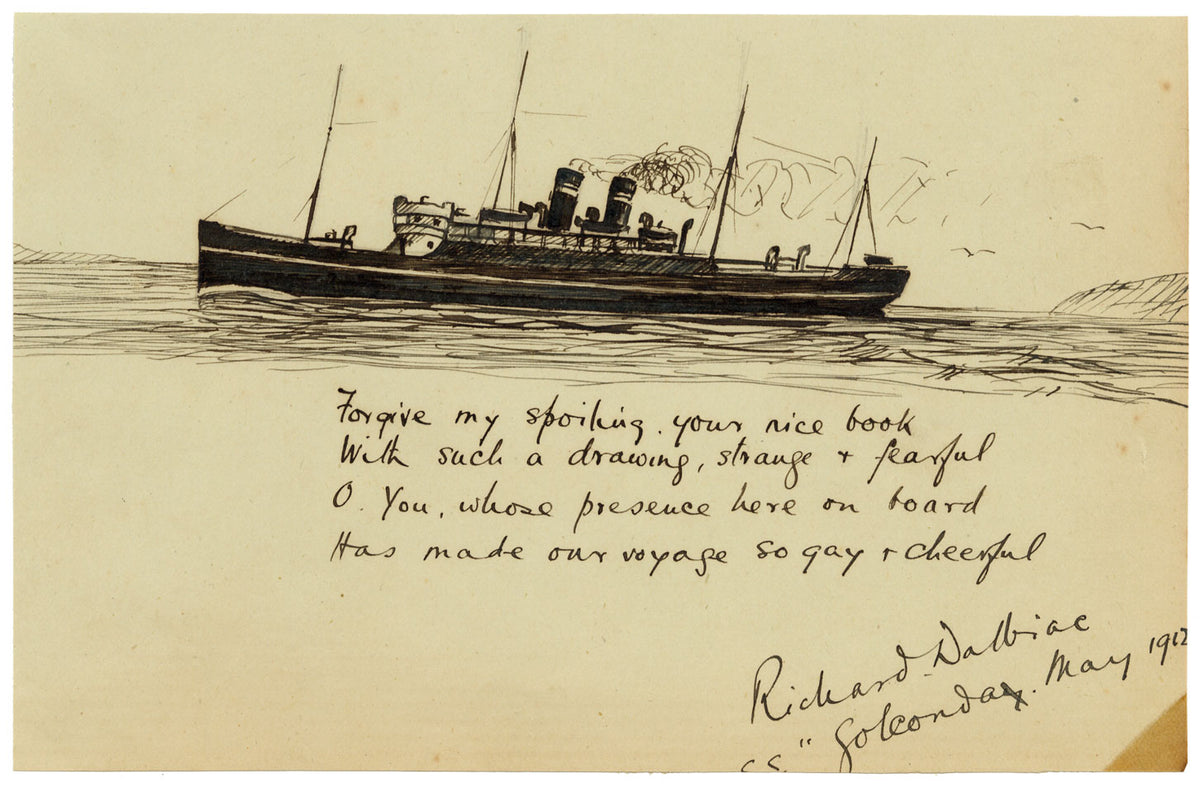 Forgive my spoiling. your nice book
With such a drawing, strange + fearful
O. You, whose presence here on board
Has made our voyage so gay + cheerful
Richard Dalbiac
SS. "Golconda". May 1912